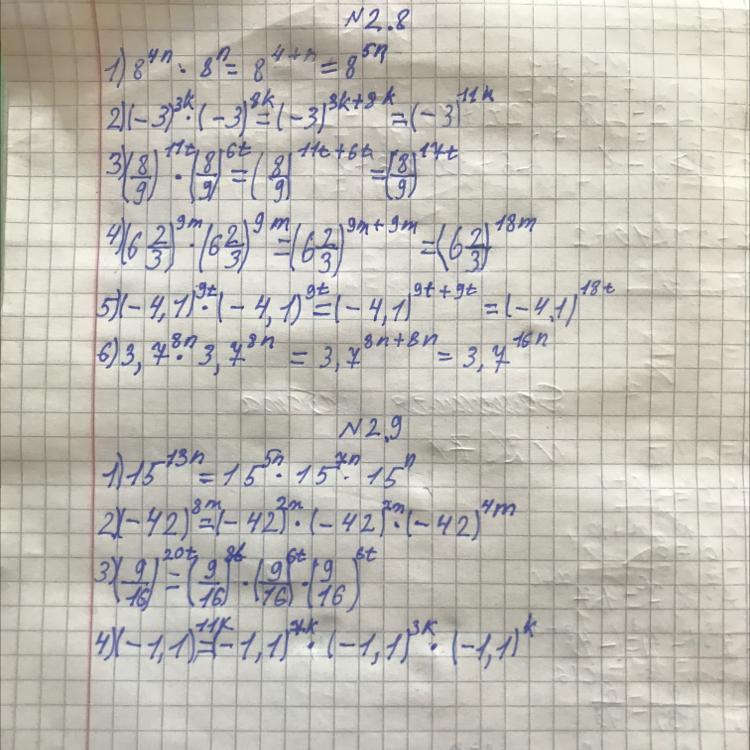 N2.8
1) 8^{4n} · 8^{n} = 8^{4+n} = 8^{5n}
2) (-3)^{3k} · (-3)^{8k} = (-3)^{3k+8k} = (-3)^{11k}
3) (8/9)^{11t} · (8/9)^{6t} = (8/9)^{11t+6t} = (8/9)^{17t}
4) (6 2/3)^{9m} · (6 2/3)^{9m} = (6 2/3)^{9m+9m} = (6 2/3)^{18m}
5) (-4,1)^{9t} · (-4,1)^{9t} = (-4,1)^{9t+9t} = (-4,1)^{18t}
6) 3,7^{8n} · 3,7^{8n} = 3,7^{8n+8n} = 3,7^{16n}
N2.9
1) 15^{13n} = 15^{5n} · 15^{7n} · 15^{n}
2) (-42)^{8m} = (-42)^{2m} · (-42)^{2m} · (-42)^{4m}
3) (9/16)^{20t} = (9/16)^{8t} · (9/16)^{6t} · (9/16)^{6t}
4) (-1,1)^{11k} = (-1,1)^{7k} · (-1,1)^{3k} · (-1,1)^{k}